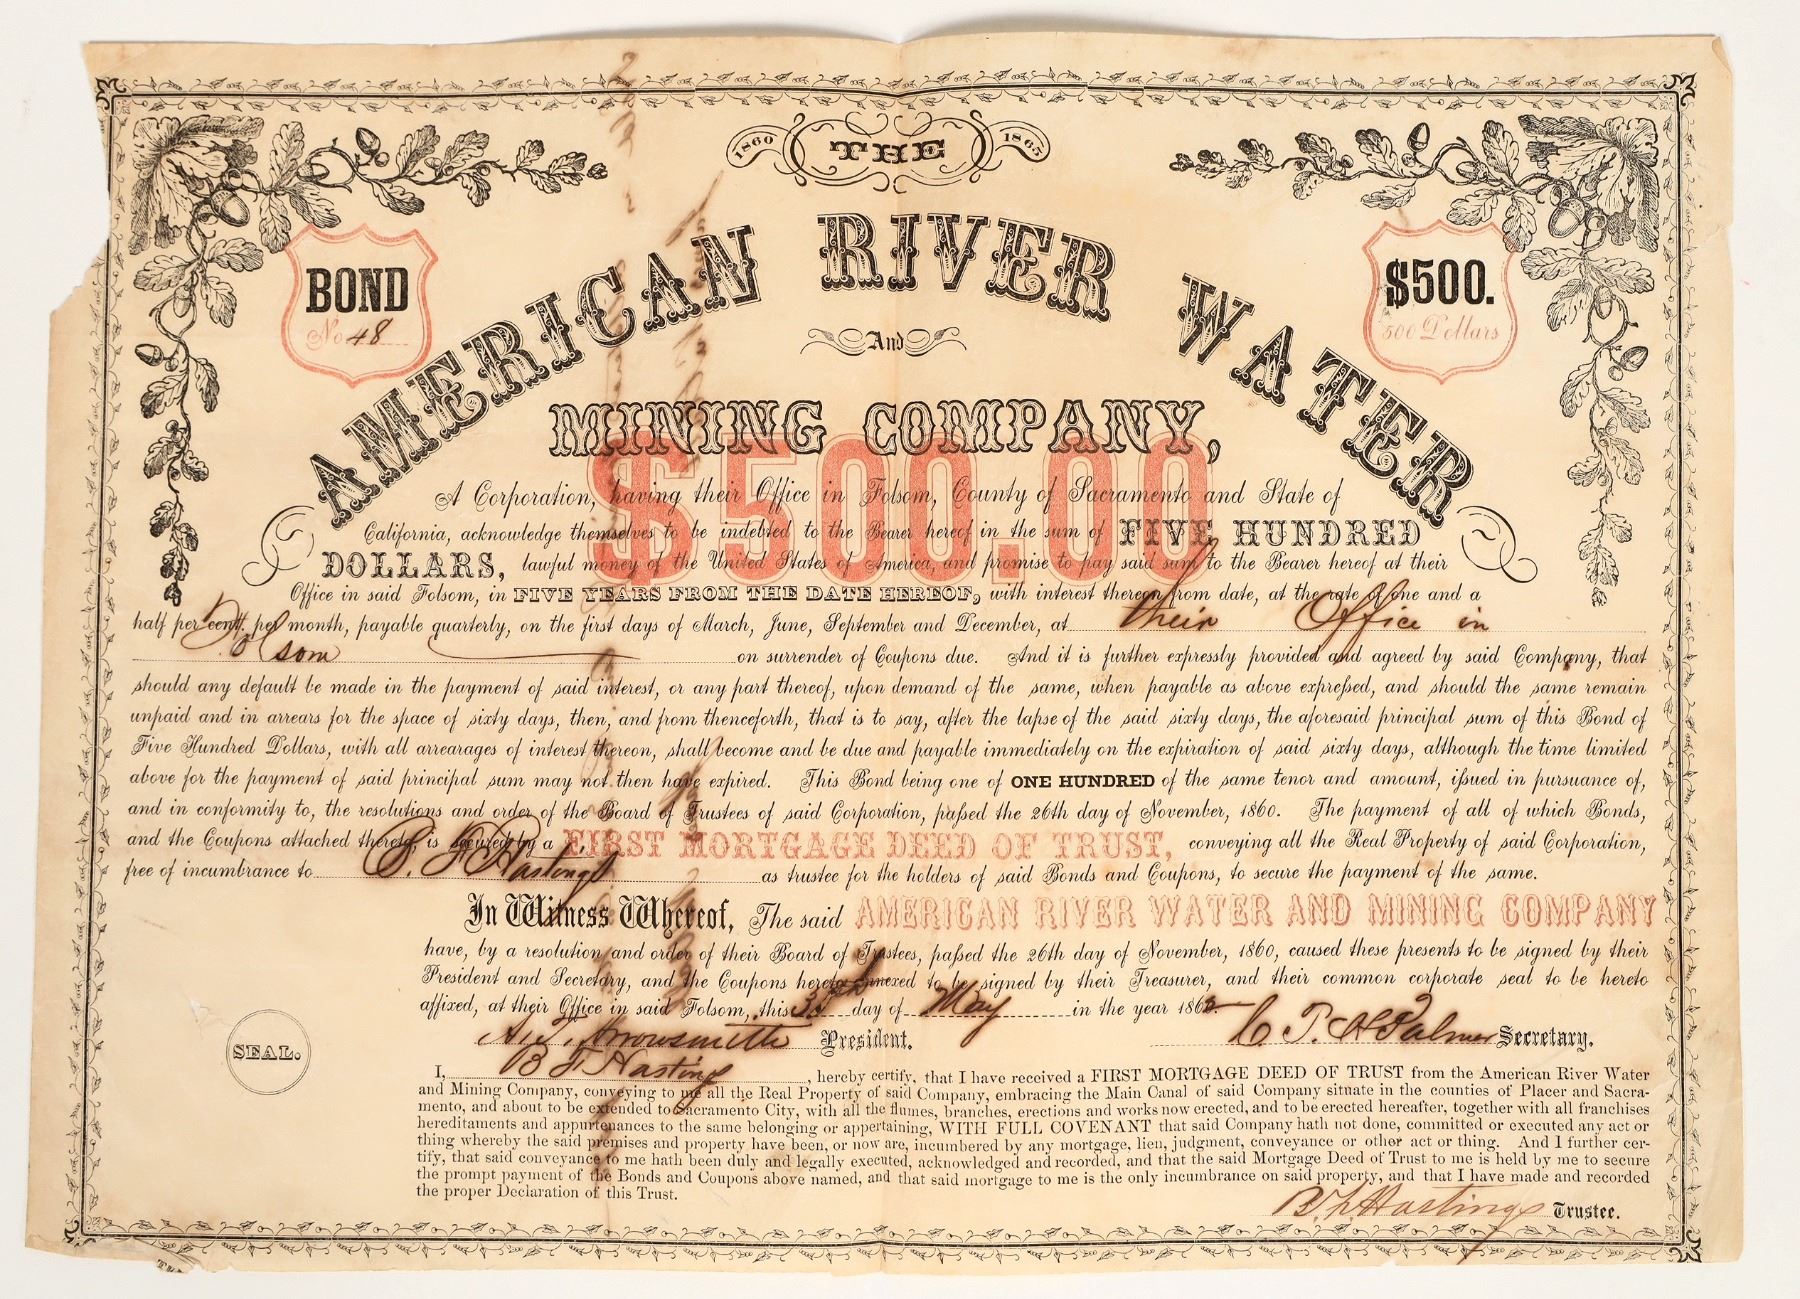 1860 THE 1865
AMERICAN RIVER WATER
BOND
No 48
$500.
500 Dollars
And
MINING COMPANY,
$500.00
A Corporation, having their Office in Folsom, County of Sacramento and State of
California, acknowledge themselves to be indebted to the Bearer hereof in the sum of FIVE HUNDRED
DOLLARS, lawful money of the United States of America, and promise to pay said sum to the Bearer hereof at their
Office in said Folsom, in FIVE YEARS FROM THE DATE HEREOF, with interest thereon from date, at the rate of one and a
half per cent. per month, payable quarterly, on the first days of March, June, September and December, at their Office in
Folsom on surrender of Coupons due. And it is further expressly provided and agreed by said Company, that
should any default be made in the payment of said interest, or any part thereof, upon demand of the same, when payable as above expressed, and should the same remain
unpaid and in arrears for the space of sixty days, then, and from thenceforth, that is to say, after the lapse of the said sixty days, the aforesaid principal sum of this Bond of
Five Hundred Dollars, with all arrearages of interest thereon, shall become and be due and payable immediately on the expiration of said sixty days, although the time limited
above for the payment of said principal sum may not then have expired. This Bond being one of ONE HUNDRED of the same tenor and amount, issued in pursuance of,
and in conformity to, the resolutions and order of the Board of Trustees of said Corporation, passed the 26th day of November, 1860. The payment of all of which Bonds,
and the Coupons attached thereto, is secured by a FIRST MORTGAGE DEED OF TRUST, conveying all the Real Property of said Corporation,
free of incumbrance to B. F. Hastings as trustee for the holders of said Bonds and Coupons, to secure the payment of the same.
In Witness Whereof, The said AMERICAN RIVER WATER AND MINING COMPANY
have, by a resolution and order of their Board of Trustees, passed the 26th day of November, 1860, caused these presents to be signed by their
President and Secretary, and the Coupons hereto annexed to be signed by their Treasurer, and their common corporate seal to be hereto
affixed, at their Office in said Folsom, this day of May in the year 186
SEAL.
Arrowsmith President. C. T. H. Palmer Secretary.
I, B F Hastings, hereby certify, that I have received a FIRST MORTGAGE DEED OF TRUST from the American River Water
and Mining Company, conveying to me all the Real Property of said Company, embracing the Main Canal of said Company situate in the counties of Placer and Sacra-
mento, and about to be extended to Sacramento City, with all the flumes, branches, erections and works now erected, and to be erected hereafter, together with all franchises
hereditaments and appurtenances to the same belonging or appertaining, WITH FULL COVENANT that said Company hath not done, committed or executed any act or
thing whereby the said premises and property have been, or now are, incumbered by any mortgage, lien, judgment, conveyance or other act or thing. And I further cer-
tify, that said conveyance to me hath been duly and legally executed, acknowledged and recorded, and that the said Mortgage Deed of Trust to me is held by me to secure
the prompt payment of the Bonds and Coupons above named, and that said mortgage to me is the only incumbrance on said property, and that I have made and recorded
the proper Declaration of this Trust.
B. F. Hastings Trustee.